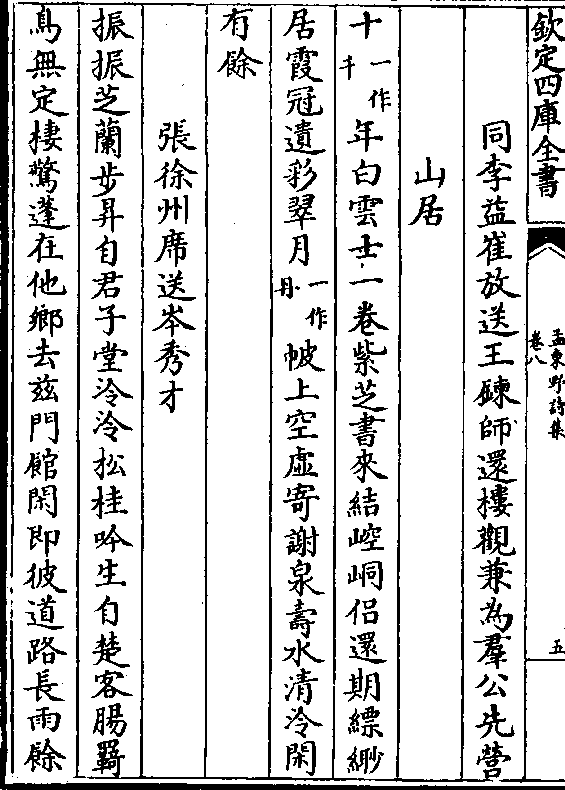 欽定四庫全書
孟東野詩集
卷八
五
同李益崔放送王鍊師還樓觀兼為羣公先營
山居
十一作千年白雲士一卷紫芝書來結崆峒侣還期縹緲
居霞冠遺彩翠月一作丹帔上空虛寄謝泉壽水清泠閑
有餘
張徐州席送岑秀才
振振芝蘭步昇自君子堂泠泠松桂吟生自楚客腸羇
鳥無定棲驚蓬在他鄉去兹門館閑即彼道路長雨餘